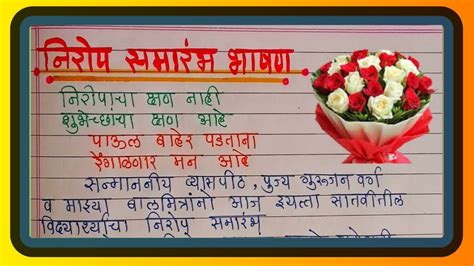 निरोप समारंभ भाषण
निरोपाचा क्षण नाही
शुभेच्छांचा क्षण आहे
पाऊल बाहेर पडताना
रेंगाळणार मन आहे
सन्माननीय व्यासपीठ, पुज्य गुरुजन वर्ग
व माझ्या बालमित्रांनो आज इयत्ता सातवीतील
विद्यार्थ्यांचा निरोप समारंभ